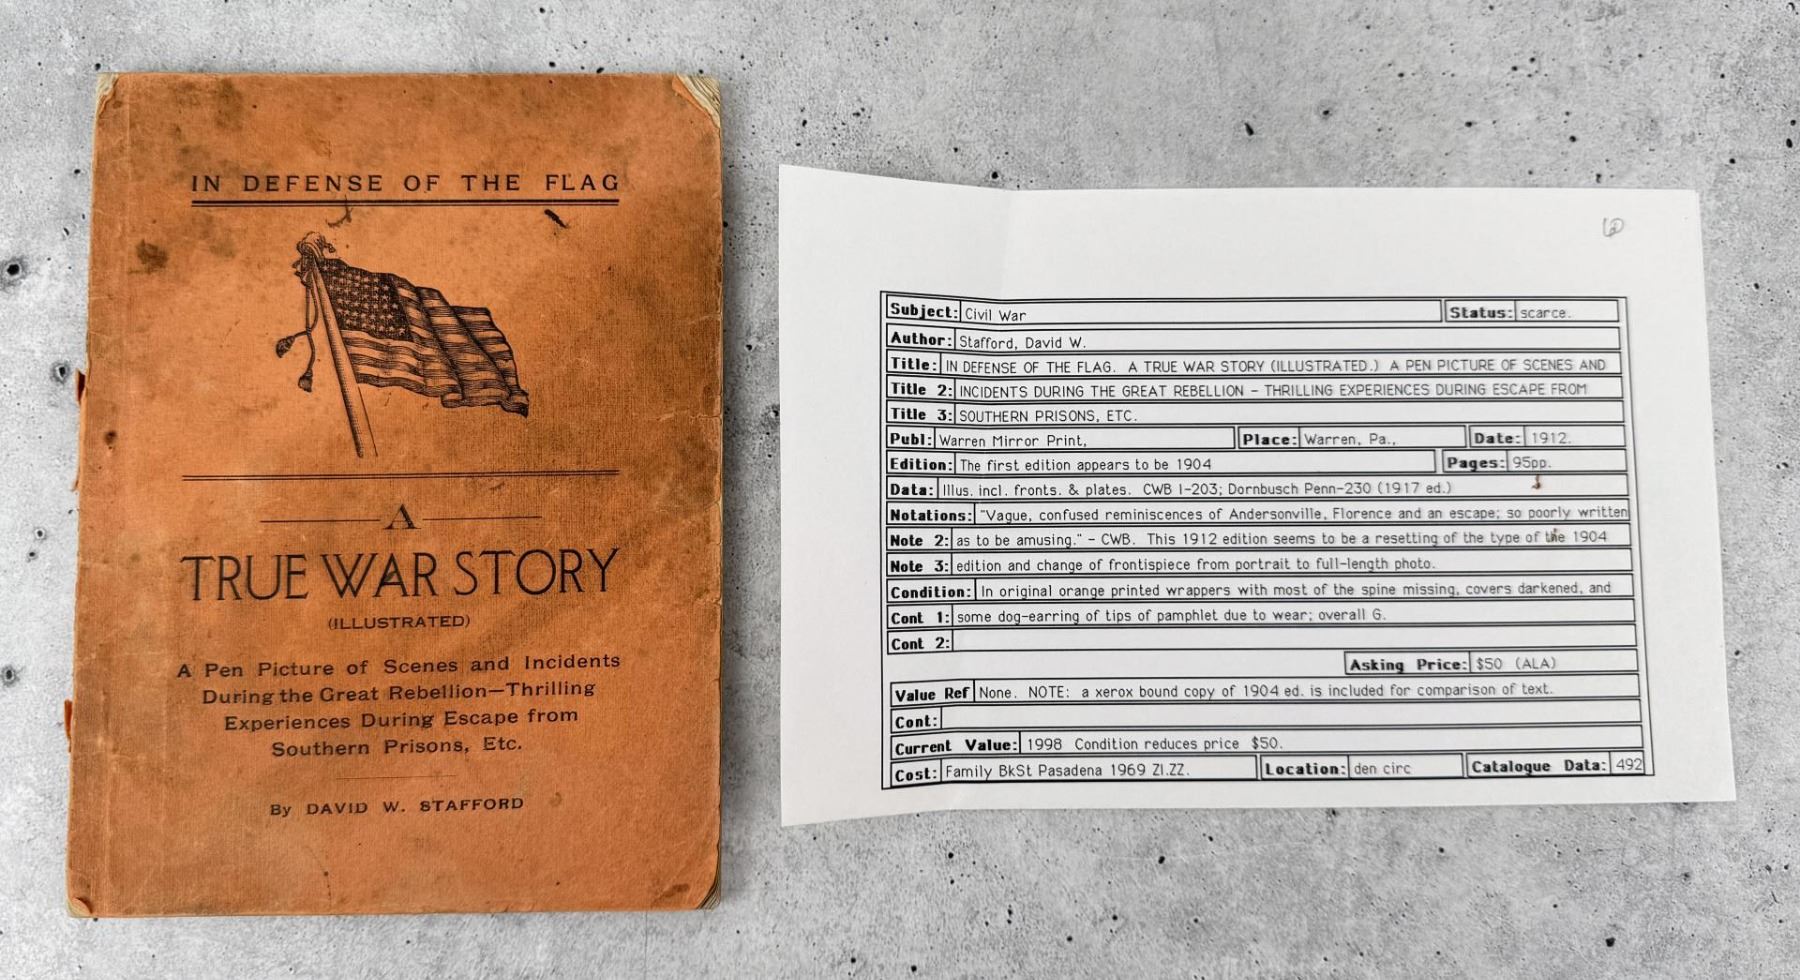 IN DEFENSE OF THE FLAG
A
TRUE WAR STORY
(ILLUSTRATED)
A Pen Picture of Scenes and Incidents
During the Great Rebellion—Thrilling
Experiences During Escape from
Southern Prisons, Etc.
By DAVID W. STAFFORD
Subject: Civil War Status: scarce.
Author: Stafford, David W.
Title: IN DEFENSE OF THE FLAG. A TRUE WAR STORY (ILLUSTRATED.) A PEN PICTURE OF SCENES AND
Title 2: INCIDENTS DURING THE GREAT REBELLION - THRILLING EXPERIENCES DURING ESCAPE FROM
Title 3: SOUTHERN PRISONS, ETC.
Publ: Warren Mirror Print, Place: Warren, Pa., Date: 1912.
Edition: The first edition appears to be 1904 Pages: 95pp.
Data: Illus. incl. fronts. & plates. CWB I-203; Dornbusch Penn-230 (1917 ed.)
Notations: "Vague, confused reminiscences of Andersonville, Florence and an escape; so poorly written
Note 2: as to be amusing." - CWB. This 1912 edition seems to be a resetting of the type of the 1904
Note 3: edition and change of frontispiece from portrait to full-length photo.
Condition: In original orange printed wrappers with most of the spine missing, covers darkened, and
Cont 1: some dog-earring of tips of pamphlet due to wear; overall G.
Cont 2:
Asking Price: $50 (ALA)
Value Ref None. NOTE: a xerox bound copy of 1904 ed. is included for comparison of text.
Cont:
Current Value: 1998 Condition reduces price $50.
Cost: Family BkSt Pasadena 1969 ZI.ZZ. Location: den circ Catalogue Data: 492